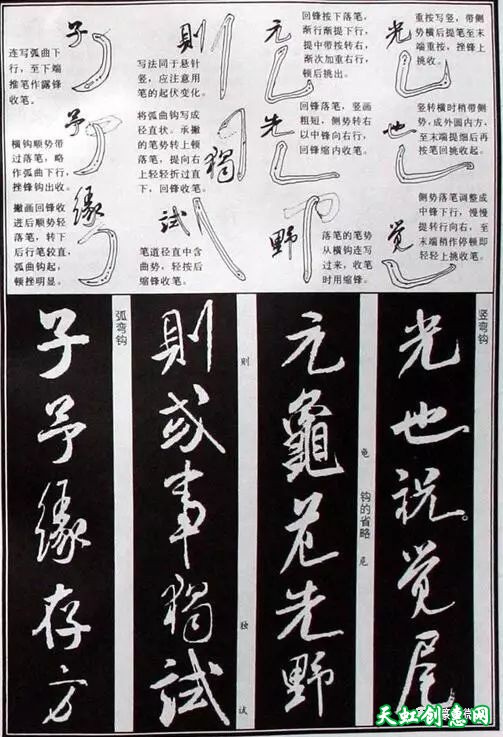 光
重按写竖，带侧
势横后提笔至末
端重按，挫锋上
挑收。
也
竖转横时稍带侧
势，成外圆内方，
至末端提细后再
按笔回挑收起。
觉
侧势落笔调整成
中锋下行，慢慢
提转行向右，至
末端稍作停顿即
轻轻上挑收笔。
元
回锋按下落笔，
渐行渐提下行，
提中带按转右，
渐次加重右行，
顿后挑出。
先
回锋落笔，竖画
粗短，侧势转右
以中锋向右行，
回锋缩内收笔。
野
落笔的笔势
从横钩连写
过来，收笔
时用缩锋。
則
写法同于悬针
竖，应注意用
笔的起伏变化。
獨
将弧曲钩写成
径直状。承撇
的笔势转上顿
落笔，提向右
上轻轻折过直
下，回锋收笔。
試
笔道径直中含
曲势，轻按后
缩锋收笔。
子
连写弧曲下
行，至下端
推笔作露锋
收笔。
予
横钩顺势带
过落笔，略
作弧曲下行，
挫锋钩出收。
缘
撇画回锋收
进后顺势轻
落笔，转下
后行笔较直，
弧曲钩起，
顿挫明显。
竖弯钩
光也説觉尾
钩的省略
龟
元龜先野
则
独
试
則或事獨試
弧弯钩
子予缘存方
天虹创意网